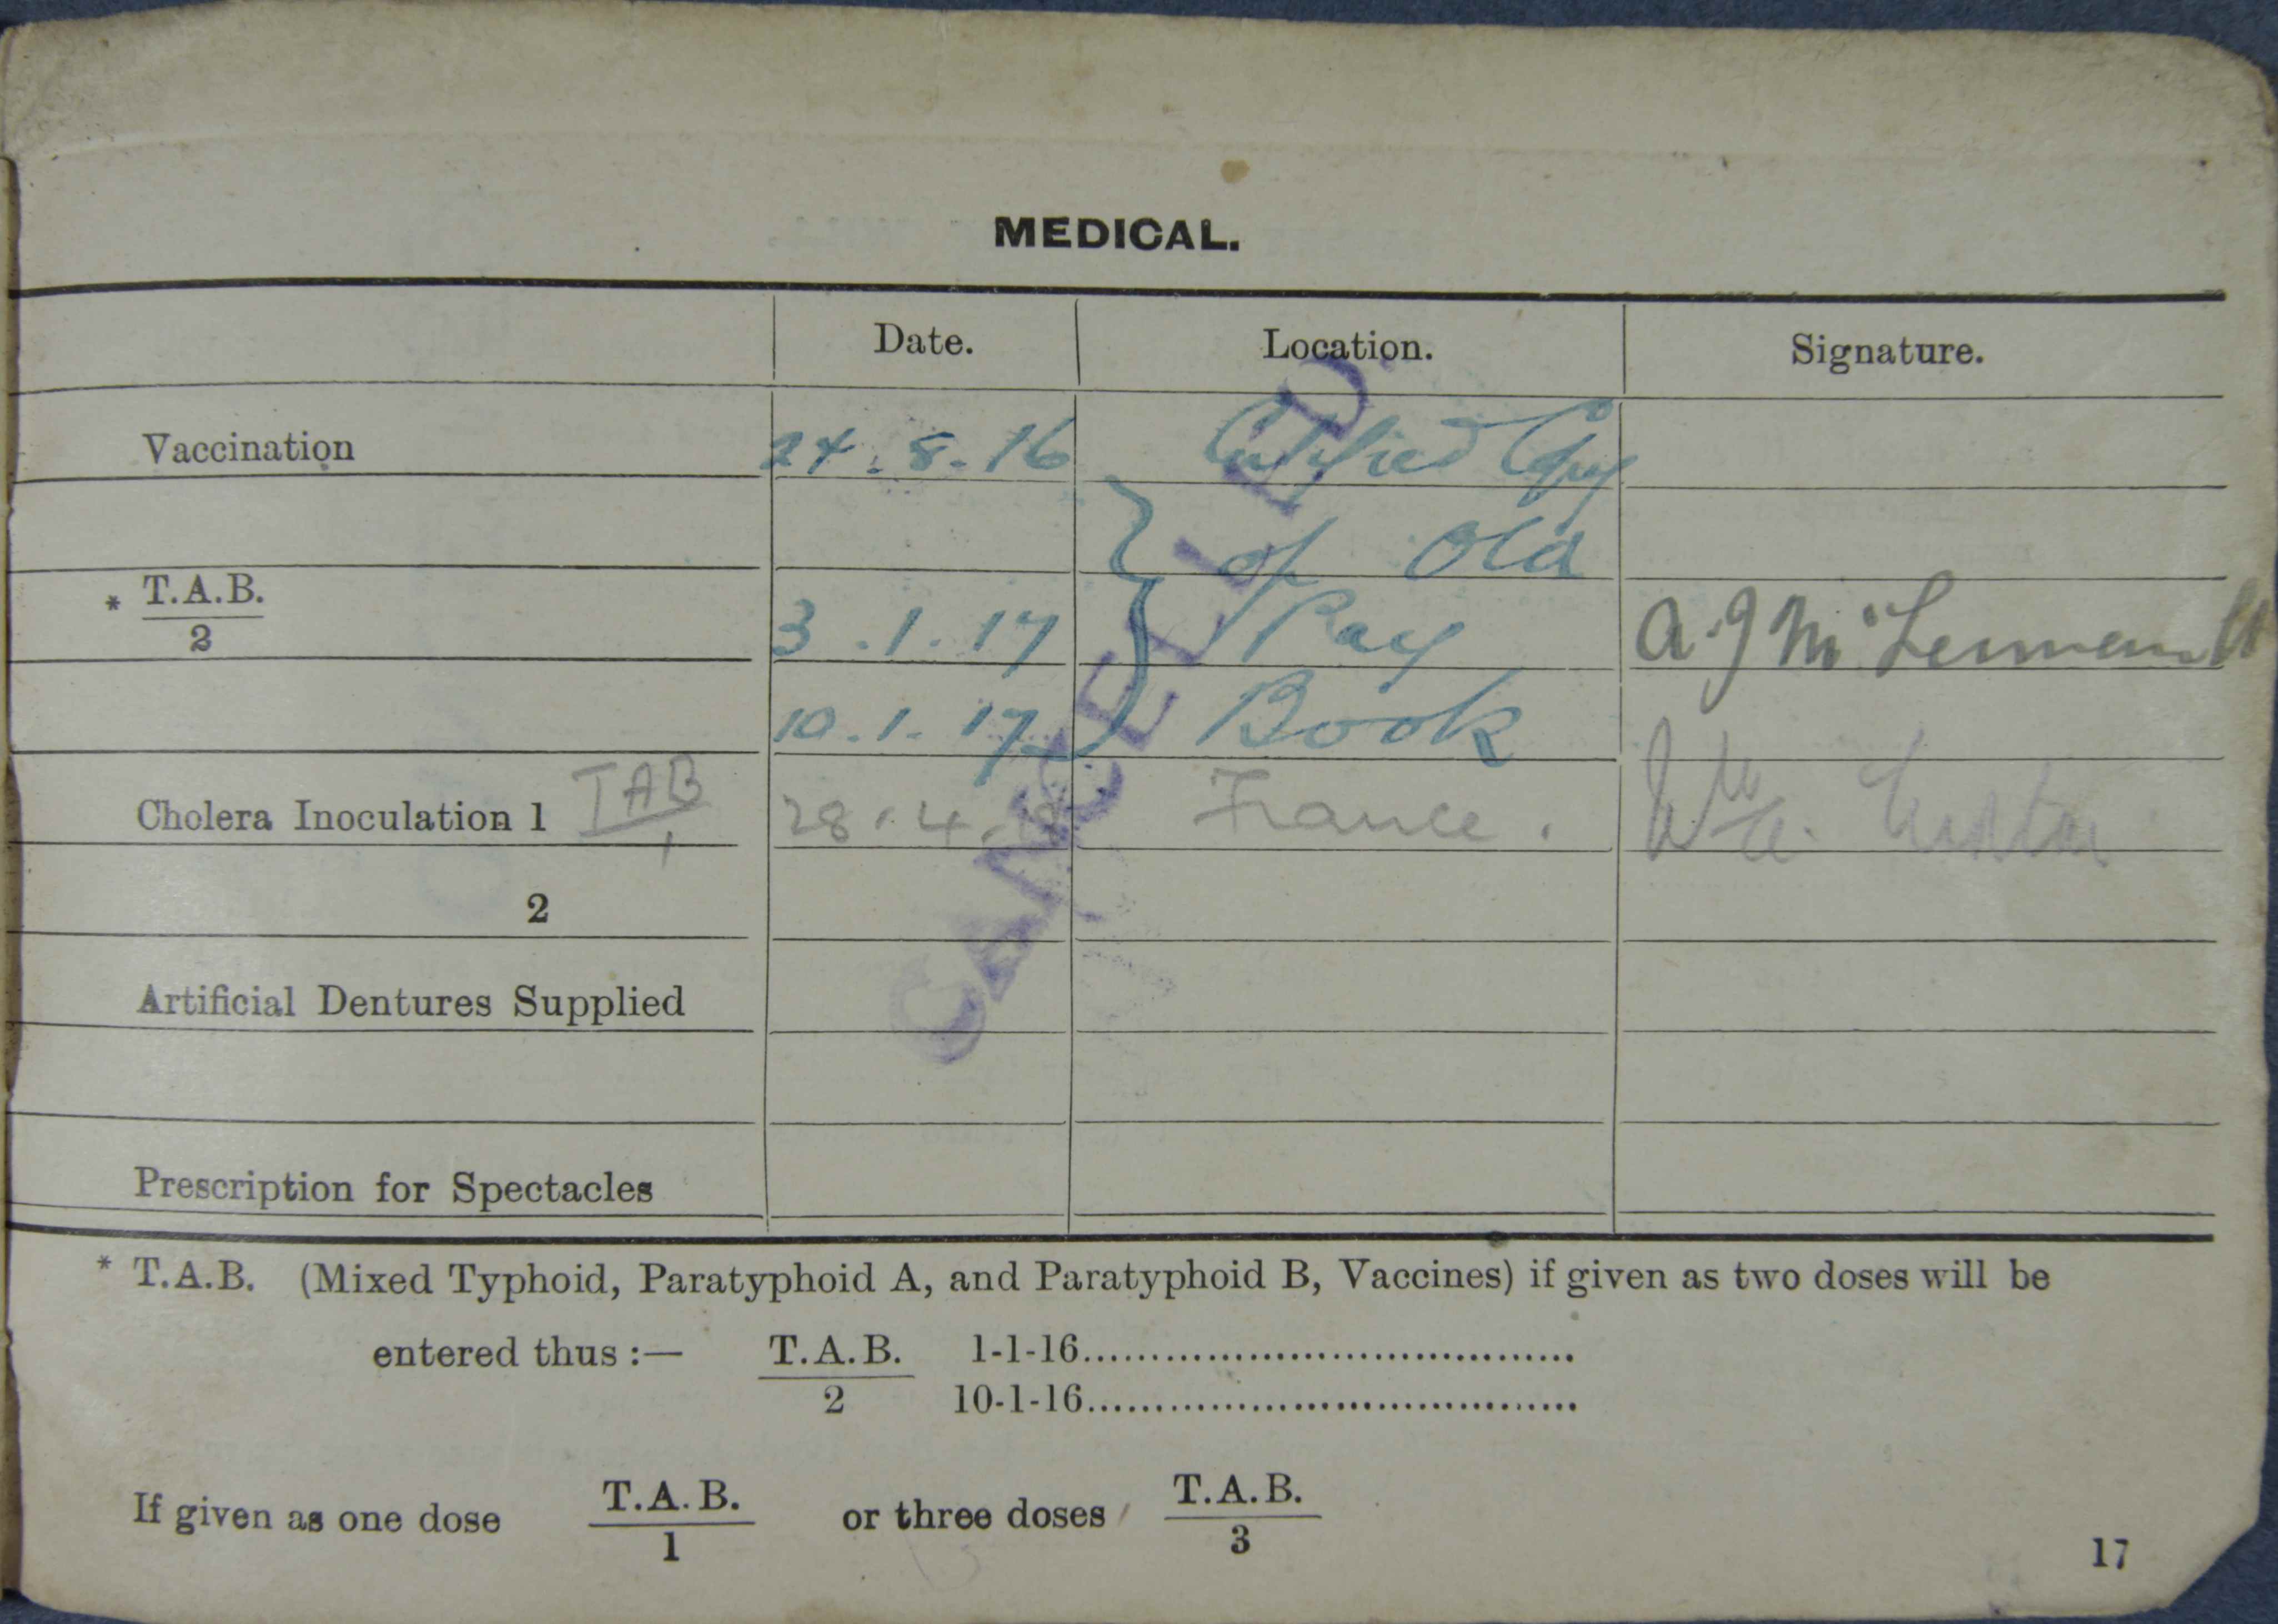 MEDICAL.
Date. Location. Signature.
Vaccination 24.8.16 Certified Copy
of Old
* T.A.B. 3.1.17 Pay A.J Mc Lt
2
10.1.17 Book
Cholera Inoculation 1 TAB 28.4. France.
1
2
Artificial Dentures Supplied
Prescription for Spectacles
CANCELLED.
* T.A.B. (Mixed Typhoid, Paratyphoid A, and Paratyphoid B, Vaccines) if given as two doses will be
entered thus :— T.A.B. 1-1-16......................................
2 10-1-16......................................
If given as one dose T.A.B. or three doses T.A.B.
1 3
17